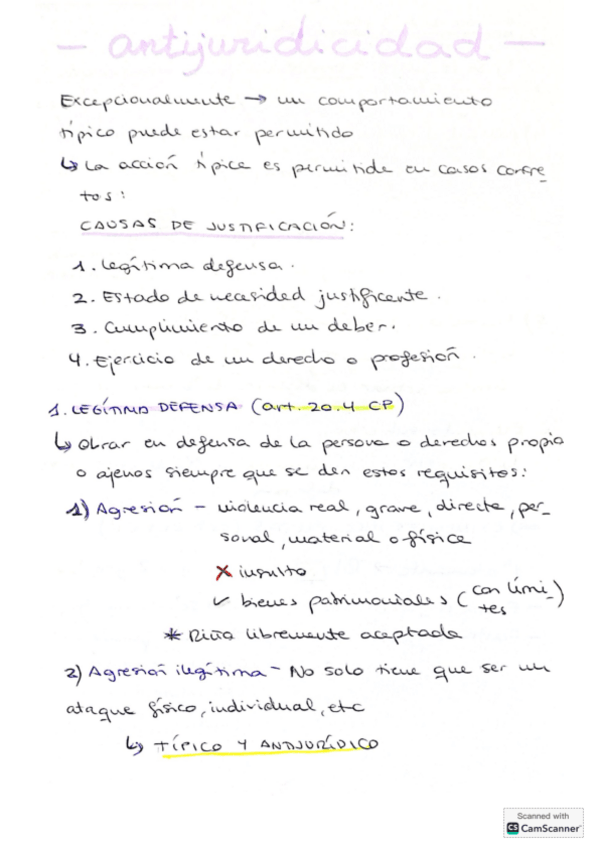 - antijuridicidad -
Excepcionalmente → un comportamiento
típico puede estar permitido
↳ La acción típica es permitida en casos concre
tos:
CAUSAS DE JUSTIFICACIÓN:
1. Legítima defensa.
2. Estado de necesidad justificante.
3. Cumplimiento de un deber.
4. Ejercicio de un derecho o profesión.
1. LEGÍTIMA DEFENSA (art. 20.4 CP)
↳ Obrar en defensa de la persona o derechos propio
o ajenos siempre que se den estos requisitos:
1) Agresión - violencia real, grave, directa, per-
sonal, material o física
✗ insulto
✓ bienes patrimoniales (con lími-
tes)
* Riña libremente aceptada
2) Agresión ilegítima - No solo tiene que ser un
ataque físico, individual, etc
↳ TÍPICO Y ANTIJURÍDICO
Scanned with
CS CamScanner